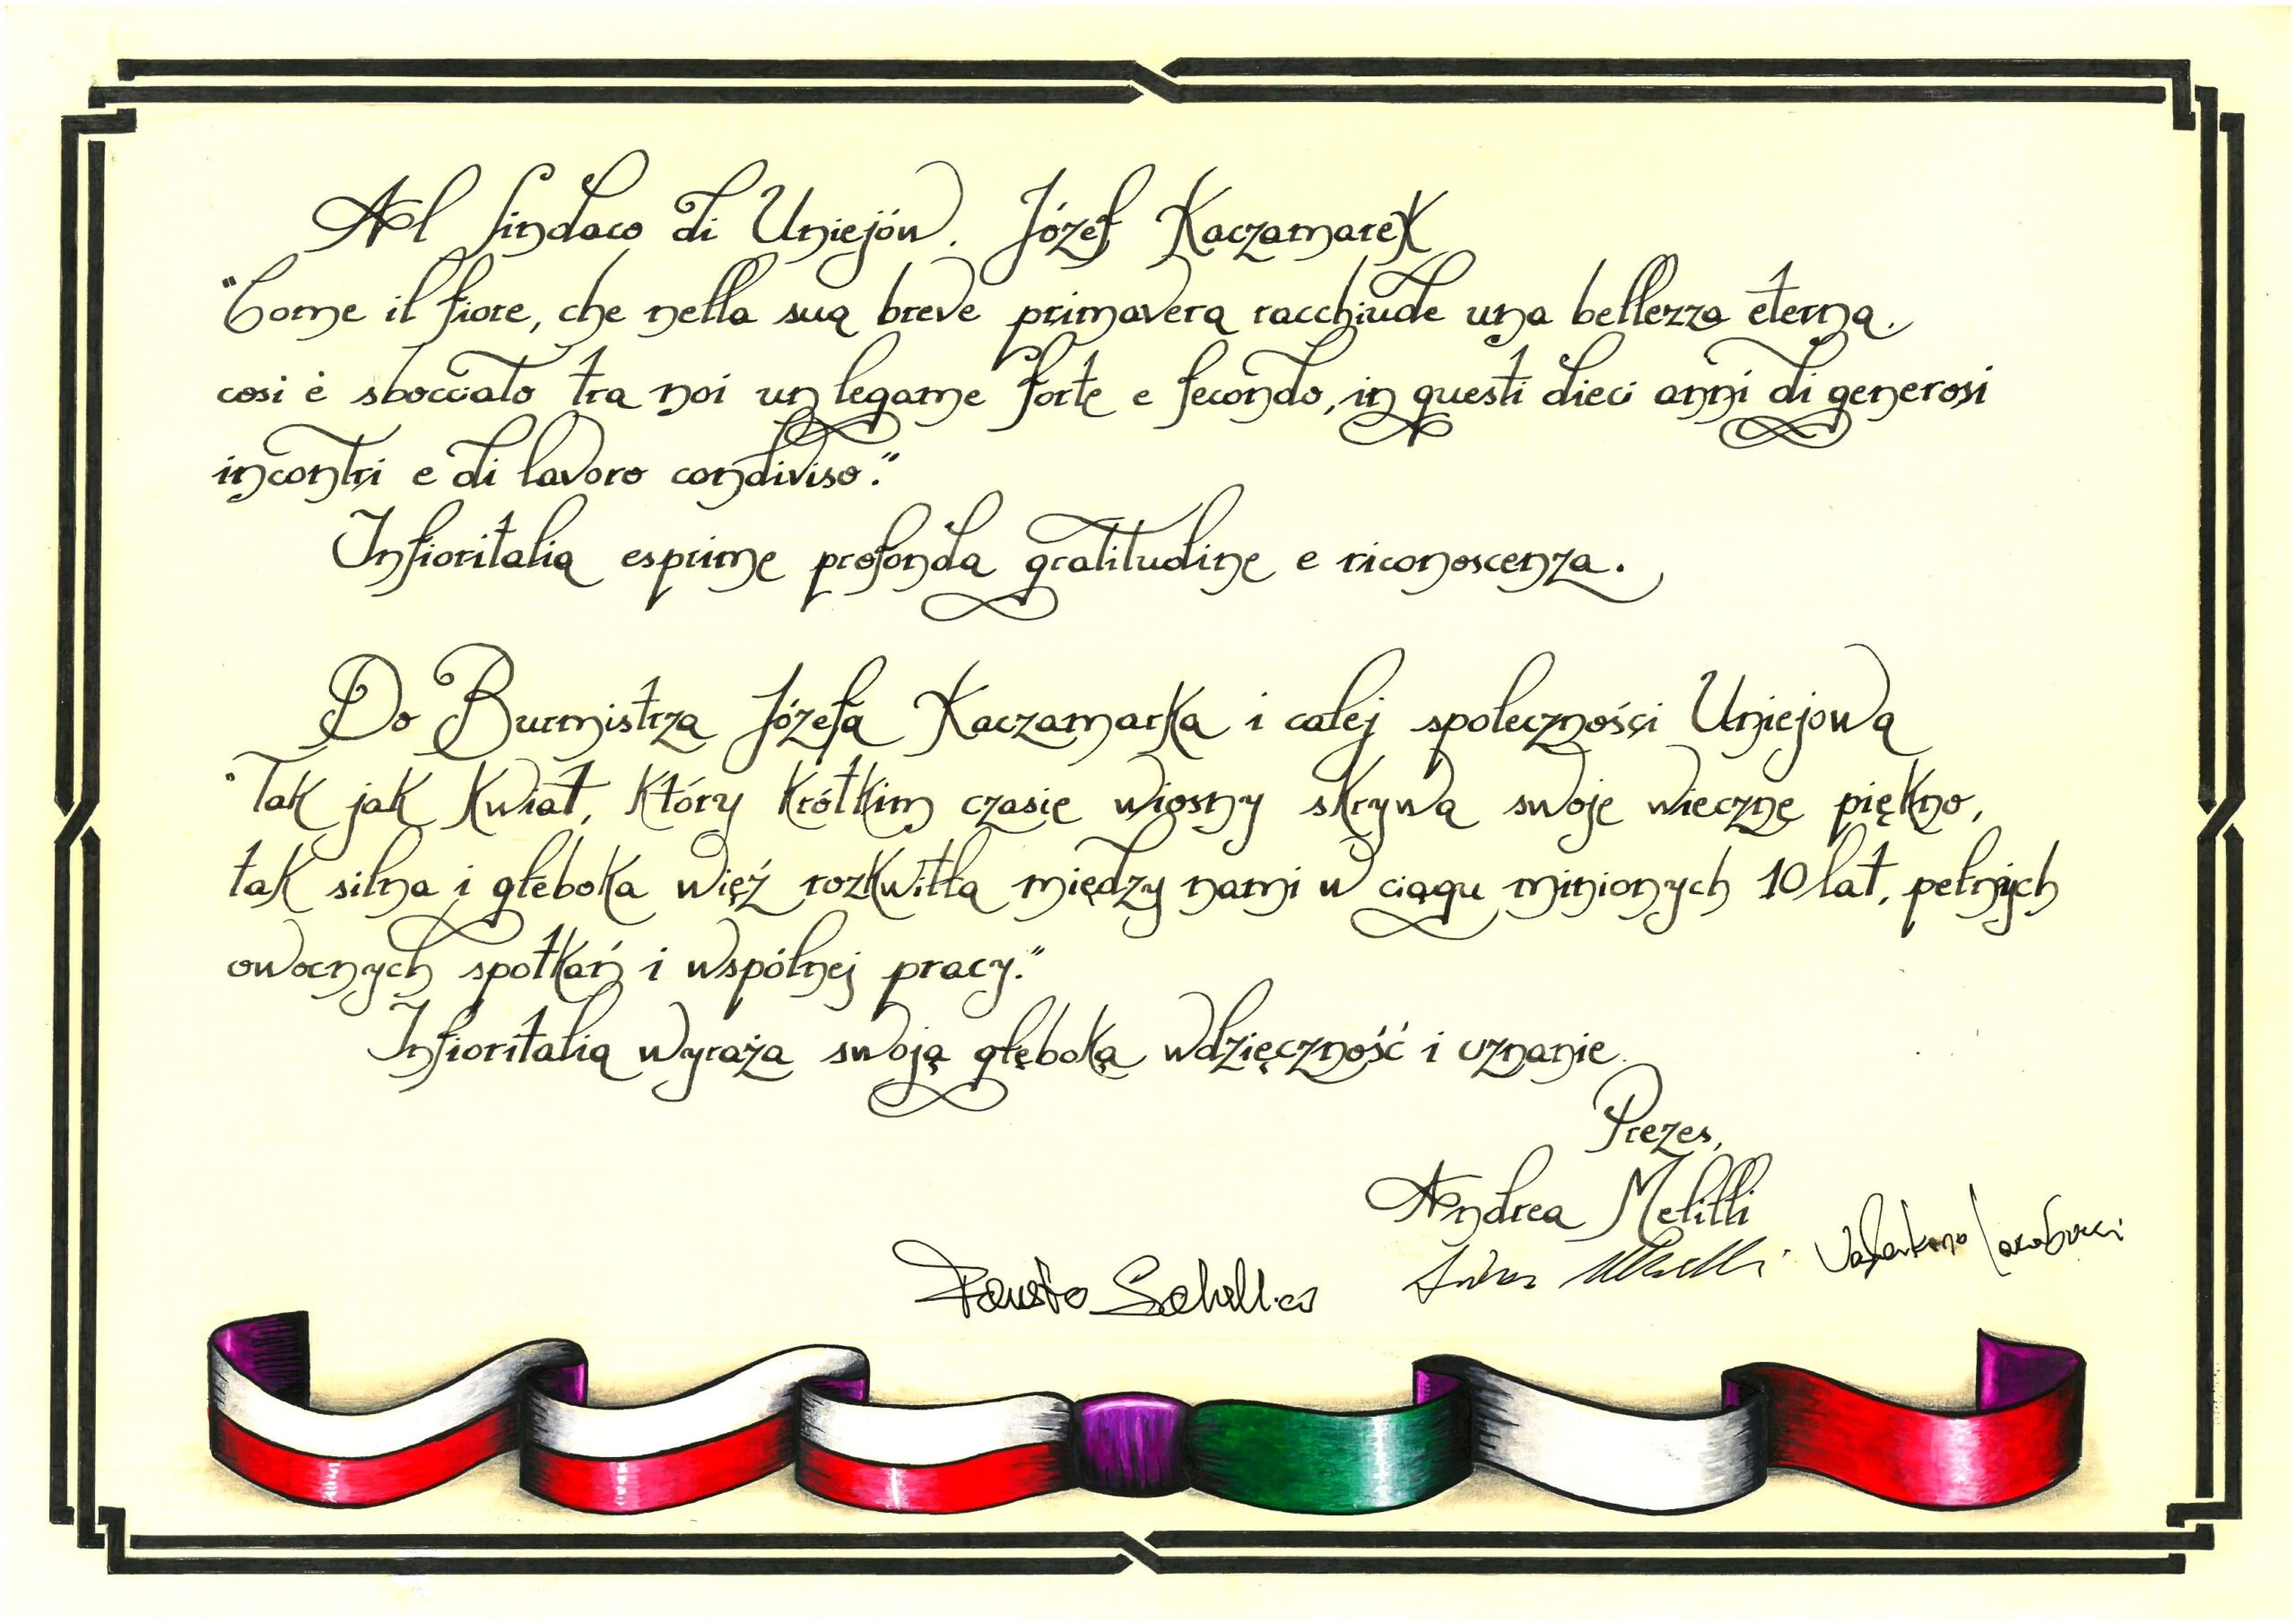 Al Sindaco di Uniejów. Józef Kaczamarek
"Come il fiore, che nella sua breve primavera racchiude una bellezza eterna,
cosi è sbocciato tra noi un legame forte e fecondo, in questi dieci anni di generosi
incontri e di lavoro condiviso."
Infioritalia esprime profonda gratitudine e riconoscenza.
Do Burmistrza Józefa Kaczamarka i całej społeczności Uniejowa
"Tak jak kwiat, który krótkim czasie wiosny skrywa swoje wieczne piękno,
tak silna i głeboka więź rozkwitła między nami w ciągu minionych 10 lat, pełnych
owocnych spotkań i wspólnej pracy."
Infioritalia wyraża swoją głęboką wdzięczność i uznanie.
Prezes,
Andrea Melilli
Fausto